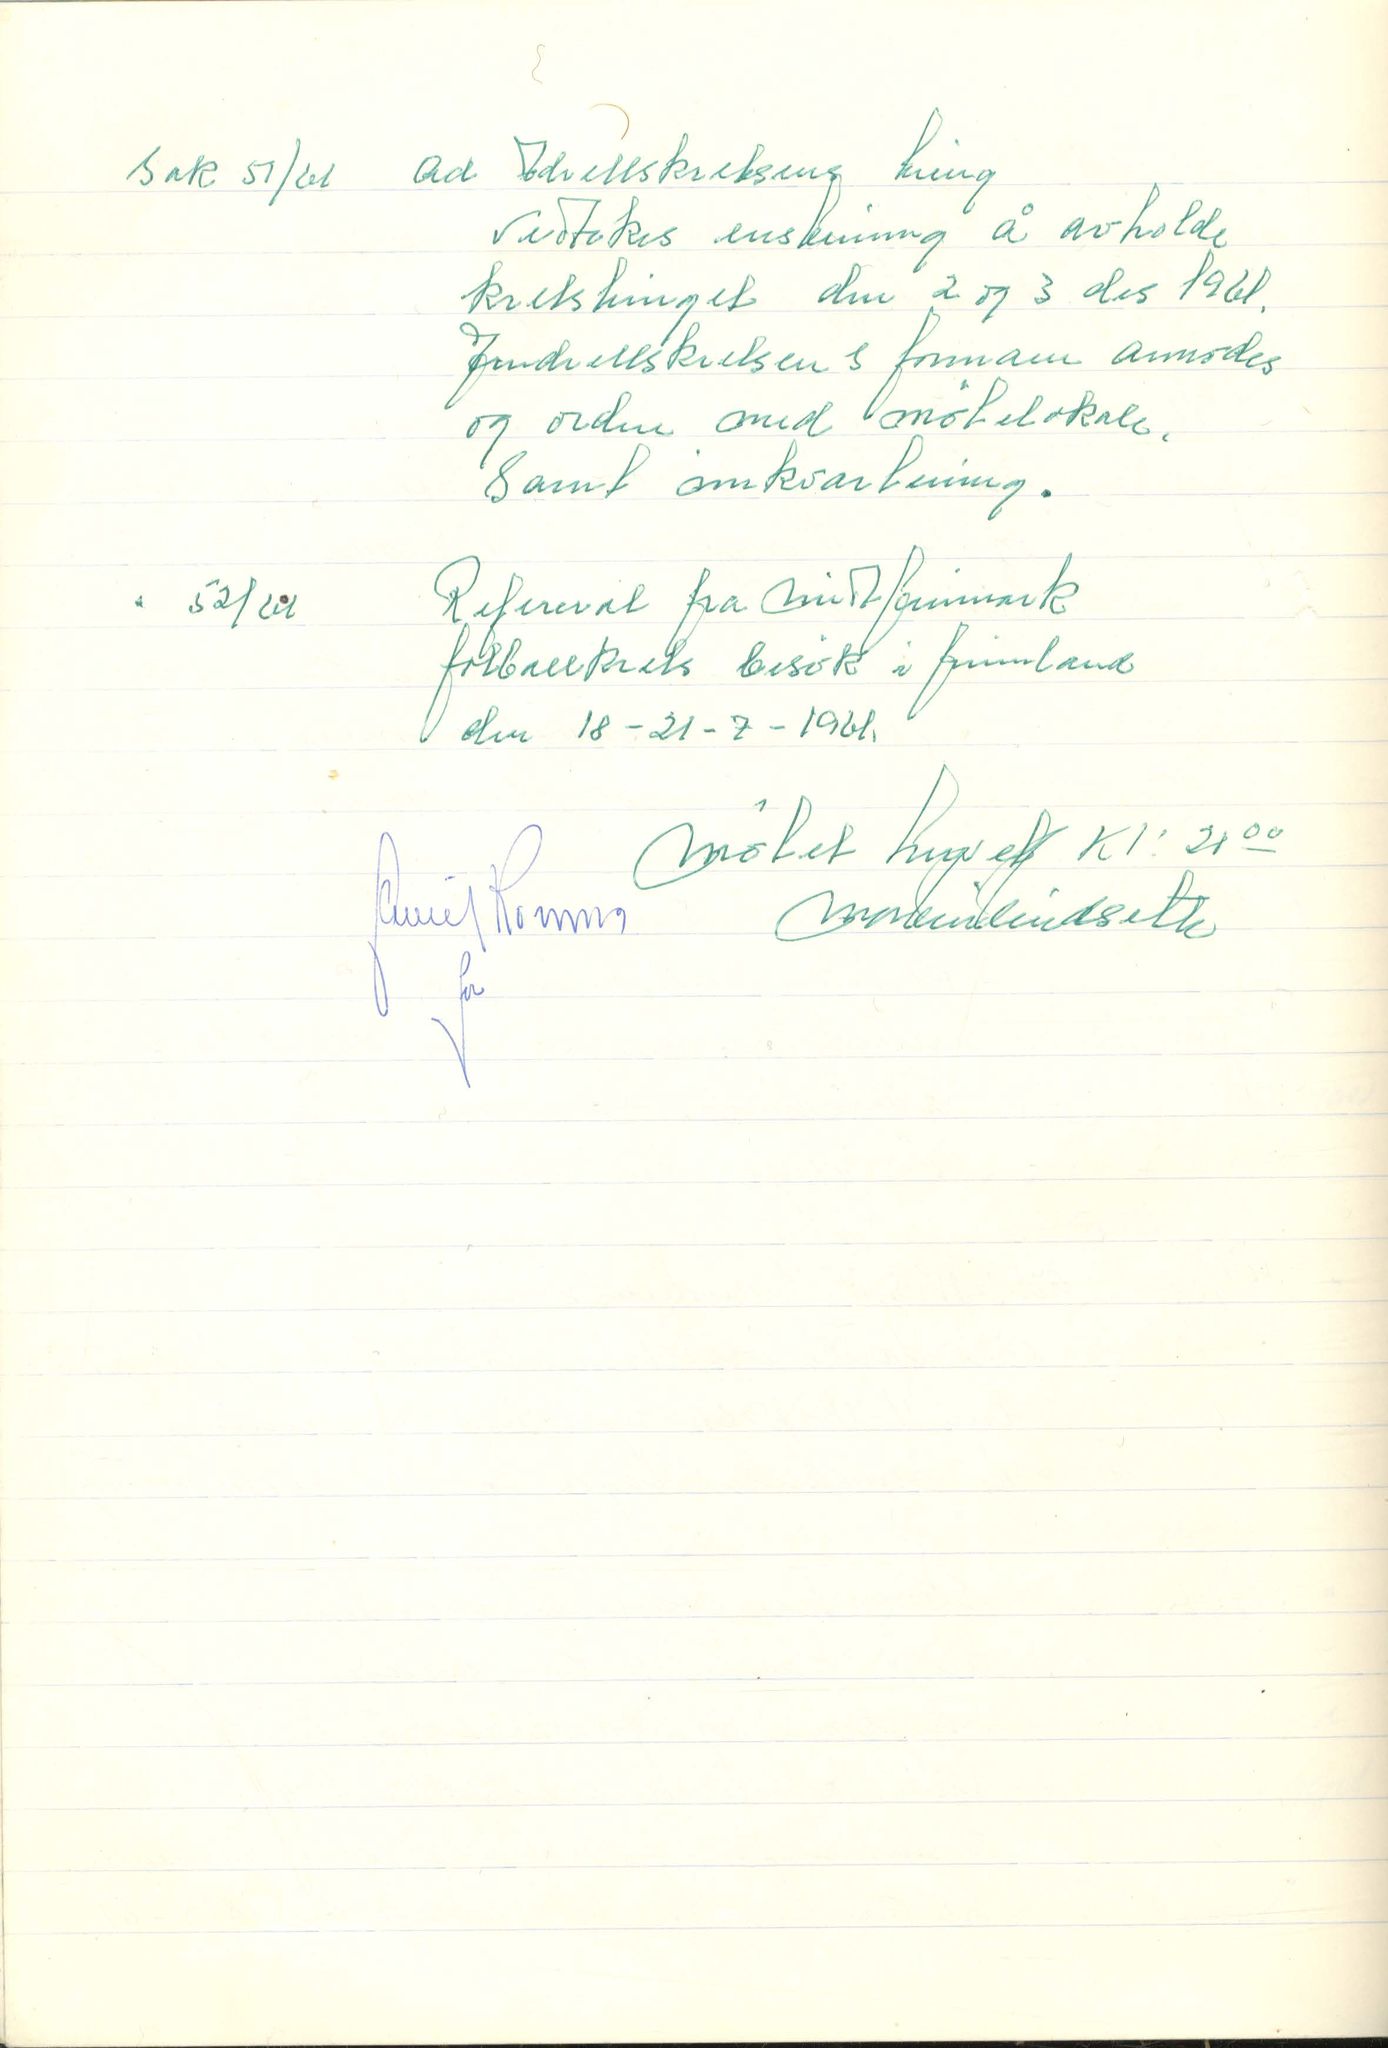 Sak 51/61 ad Idrettskretsens ting
vedtokes enstemmig å avholde
kretstinget den 2 og 3 des 1961.
Indrettskretsens formann anmodes
og ordne med møtelokale.
Samt innkvartering.
" 52/61 Refererat fra Midtfinnmark
fotballkrets besök i finnland
den 18-21-7-1961.
Møtet hevet Kl: 21 00